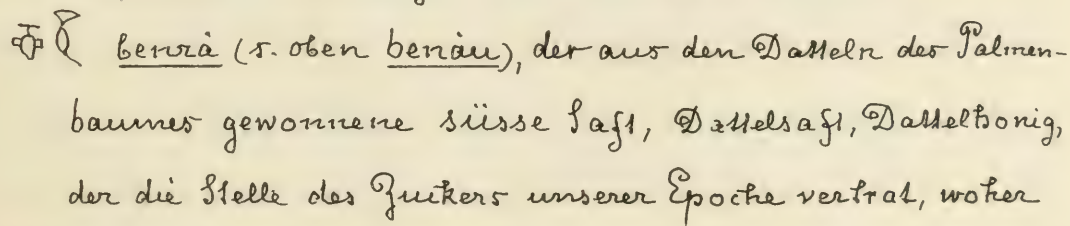 benrà (s. oben benàu), der aus den Datteln des Palmen-
baumes gewonnene süsse Saft, Dattelsaft, Dattelhonig,
der die Stelle des Zuckers unserer Epoche vertrat, woher